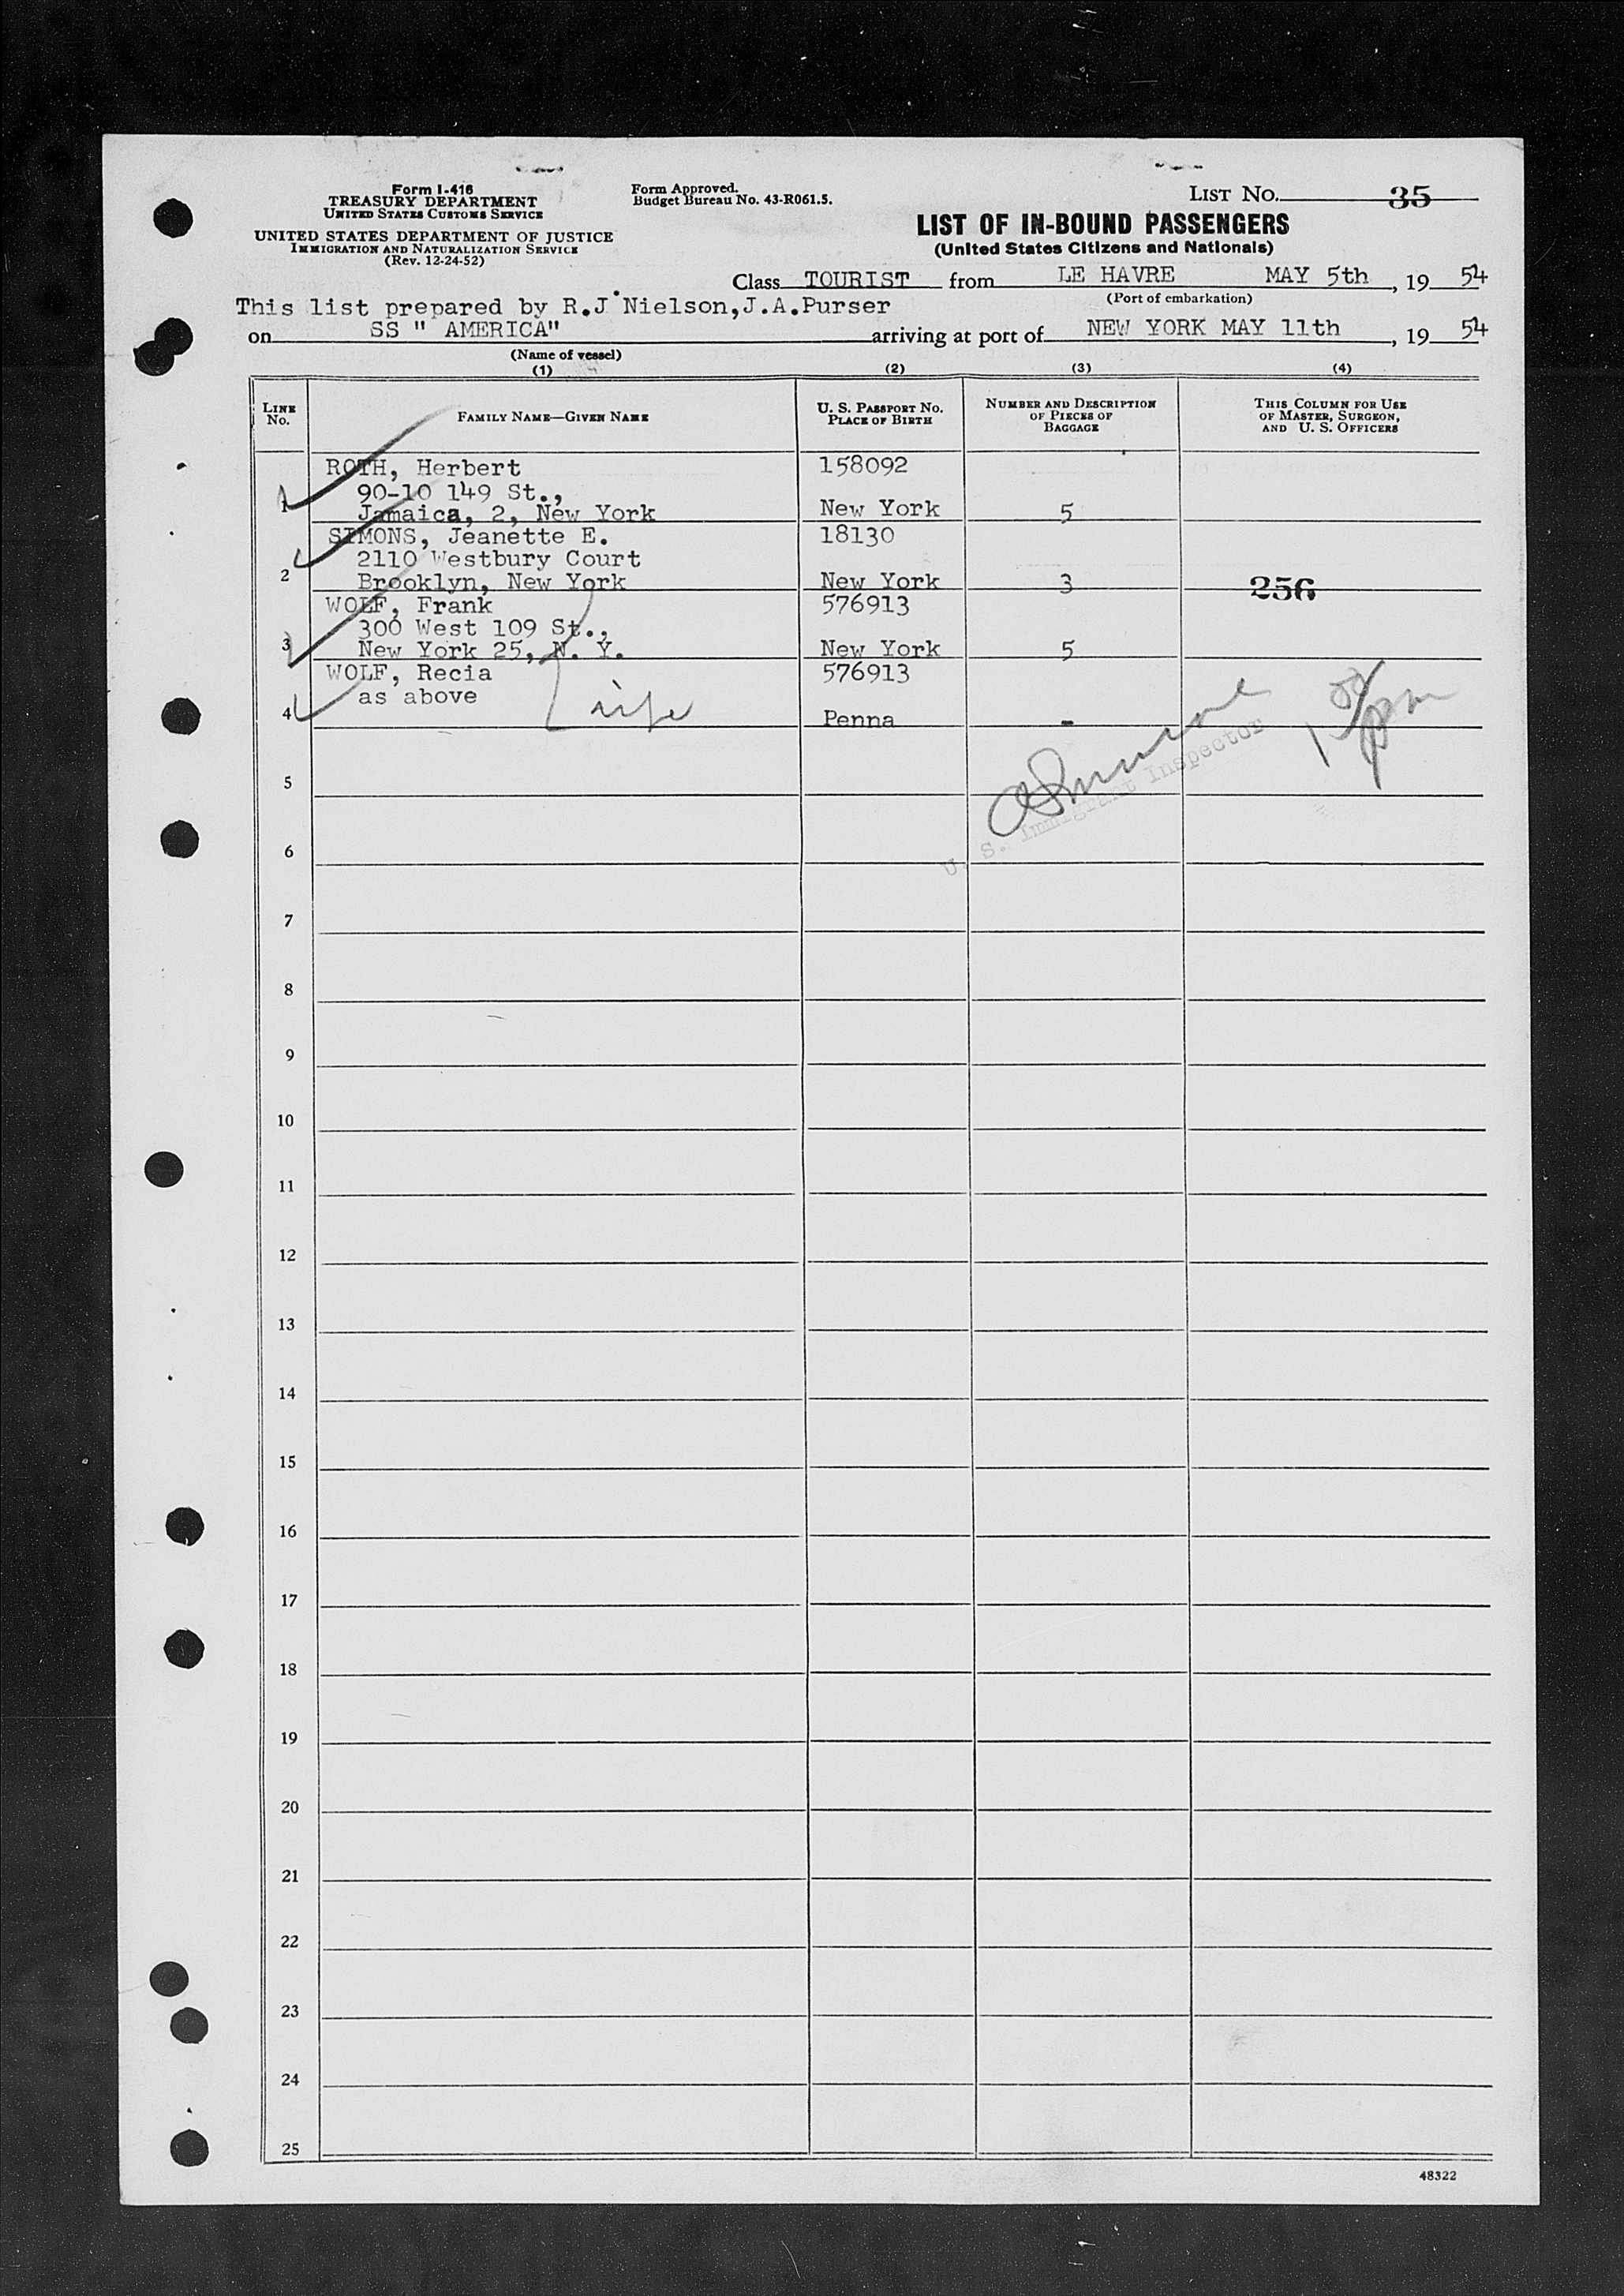 Form I-416
TREASURY DEPARTMENT
UNITED STATES CUSTOMS SERVICE
UNITED STATES DEPARTMENT OF JUSTICE
IMMIGRATION AND NATURALIZATION SERVICE
(Rev. 12-24-52)
Form Approved.
Budget Bureau No. 43-R061.5.
LIST NO. 35
LIST OF IN-BOUND PASSENGERS
(United States Citizens and Nationals)
Class TOURIST from LE HAVRE MAY 5th, 19 54
(Port of embarkation)
This list prepared by R.J Nielson,J.A.Purser
on SS " AMERICA" arriving at port of NEW YORK MAY 11th, 19 54
(Name of vessel)
(1) (2) (3) (4)
LINE No. FAMILY NAME—GIVEN NAME U. S. PASSPORT NO. PLACE OF BIRTH NUMBER AND DESCRIPTION OF PIECES OF BAGGAGE THIS COLUMN FOR USE OF MASTER, SURGEON, AND U. S. OFFICERS
ROTH, Herbert 158092
90-10 149 St.,
1 Jamaica, 2, New York New York 5
SIMONS, Jeanette E. 18130
2110 Westbury Court
2 Brooklyn, New York New York 3 256
WOLF, Frank 576913
300 West 109 St.,
3 New York 25, N. Y. New York 5
WOLF, Recia 576913
as above wife
4 Penna -
U. S. Immigrant Inspector
5
6
7
8
9
10
11
12
13
14
15
16
17
18
19
20
21
22
23
24
25
48322